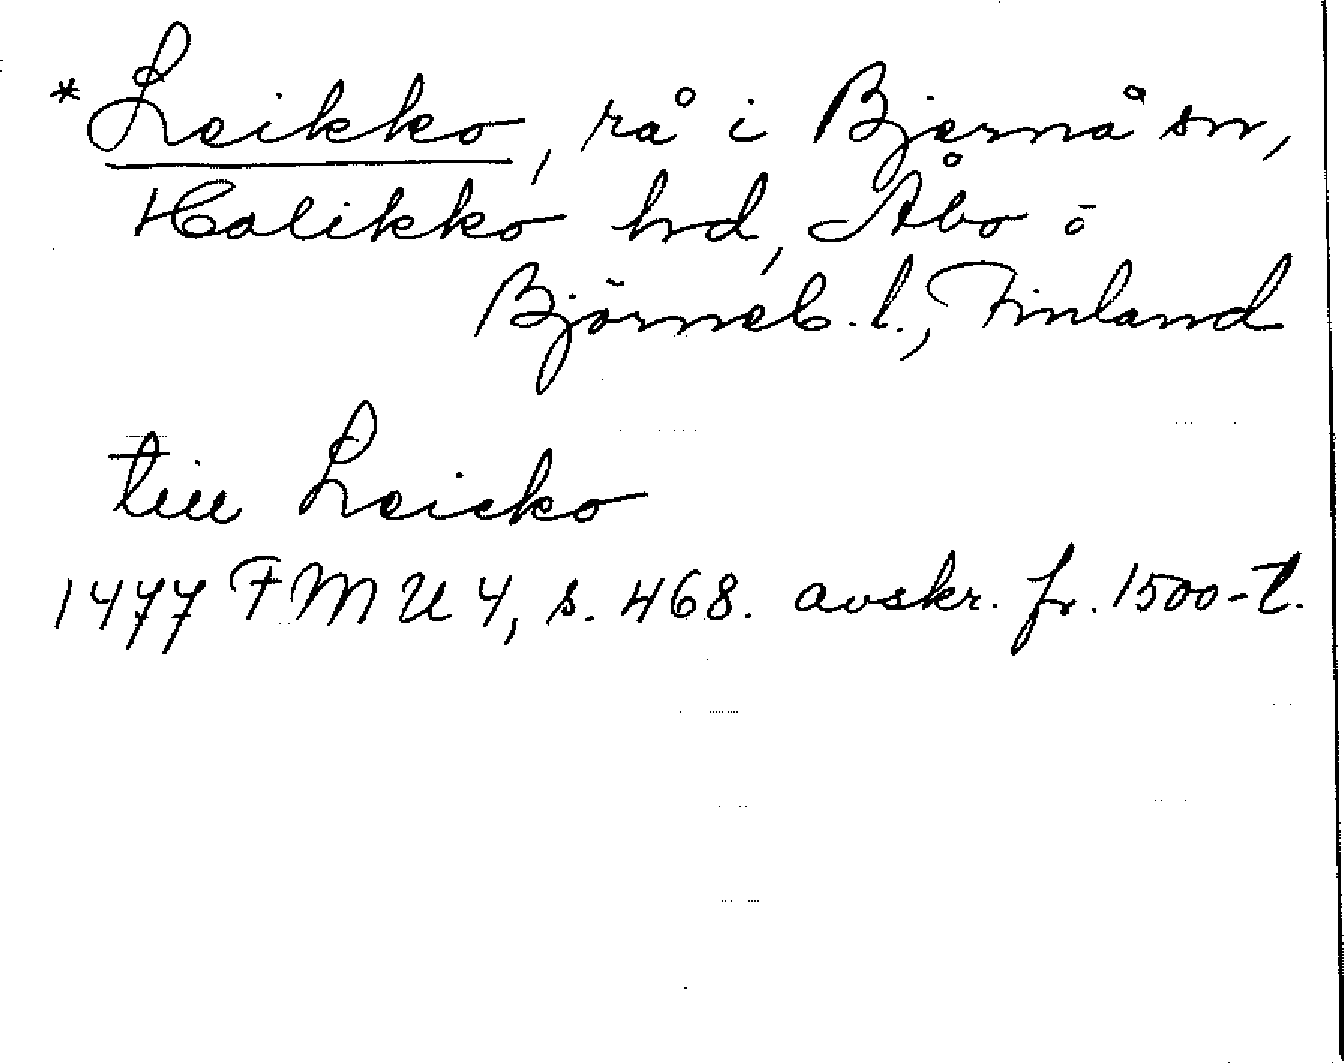 *Leikko, rå i Bjernå sn,
Halikko hd, Åbo o
Björneb. l., Finland
till Leicko
1477 FMU 4, s. 468. avskr. fr. 1500-t.